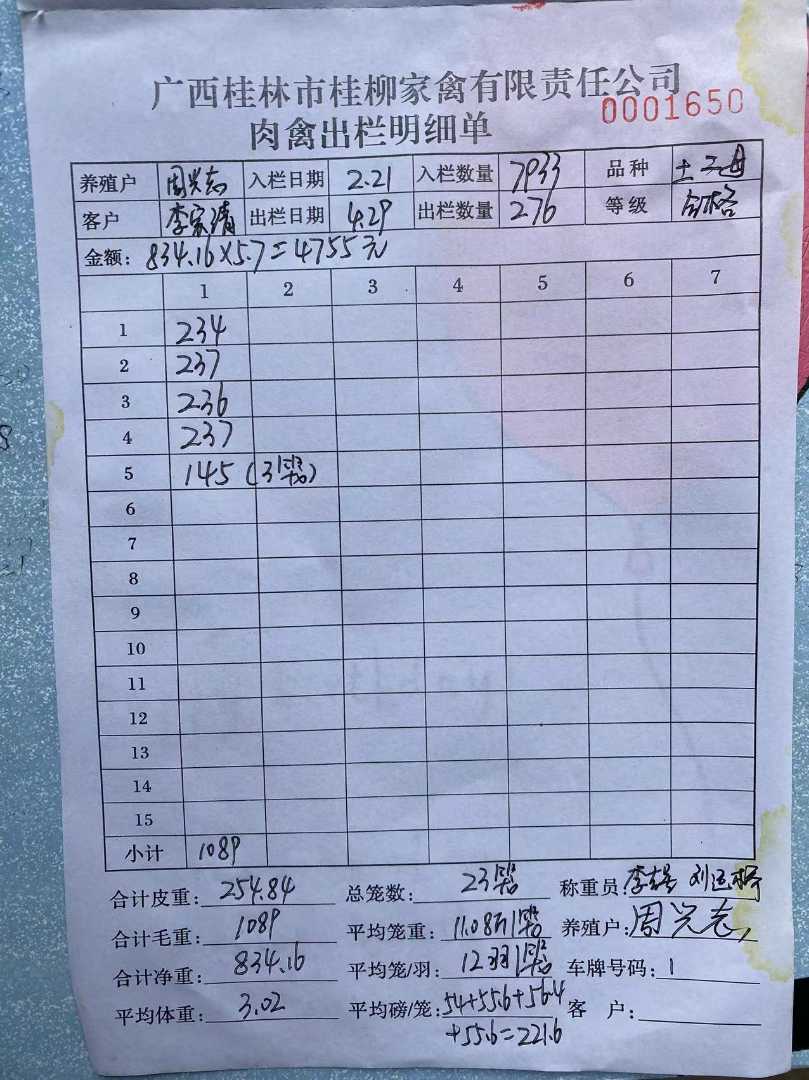 广西桂林市桂柳家禽有限责任公司
0001650
肉禽出栏明细单
养殖户 周兴志 入栏日期 2.21 入栏数量 7933 品种 土二母
客户 李家清 出栏日期 4.29 出栏数量 276 等级 合格
金额: 834.16×5.7=4755元
1 2 3 4 5 6 7
1 234
2 237
3 236
4 237
5 145 (3笼)
6
7
8
9
10
11
12
13
14
15
小计 1089
合计皮重: 254.84 总笼数: 23笼 称重员:
合计毛重: 1089 平均笼重: 11.08斤/笼 养殖户: 周兴志
合计净重: 834.16 平均笼/羽: 12羽/笼 车牌号码: 1
平均体重: 3.02 平均磅/笼: 54+55.6+56.4 客 户:
+55.6=221.6